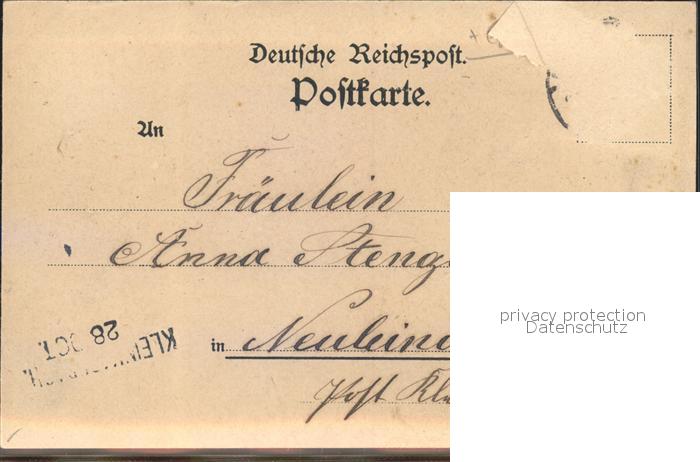 Deutsche Reichspost.
Postkarte.
An
Fräulein
Anna Steng
in Neulein
Post Kl
28 OCT.
privacy protection
Datenschutz